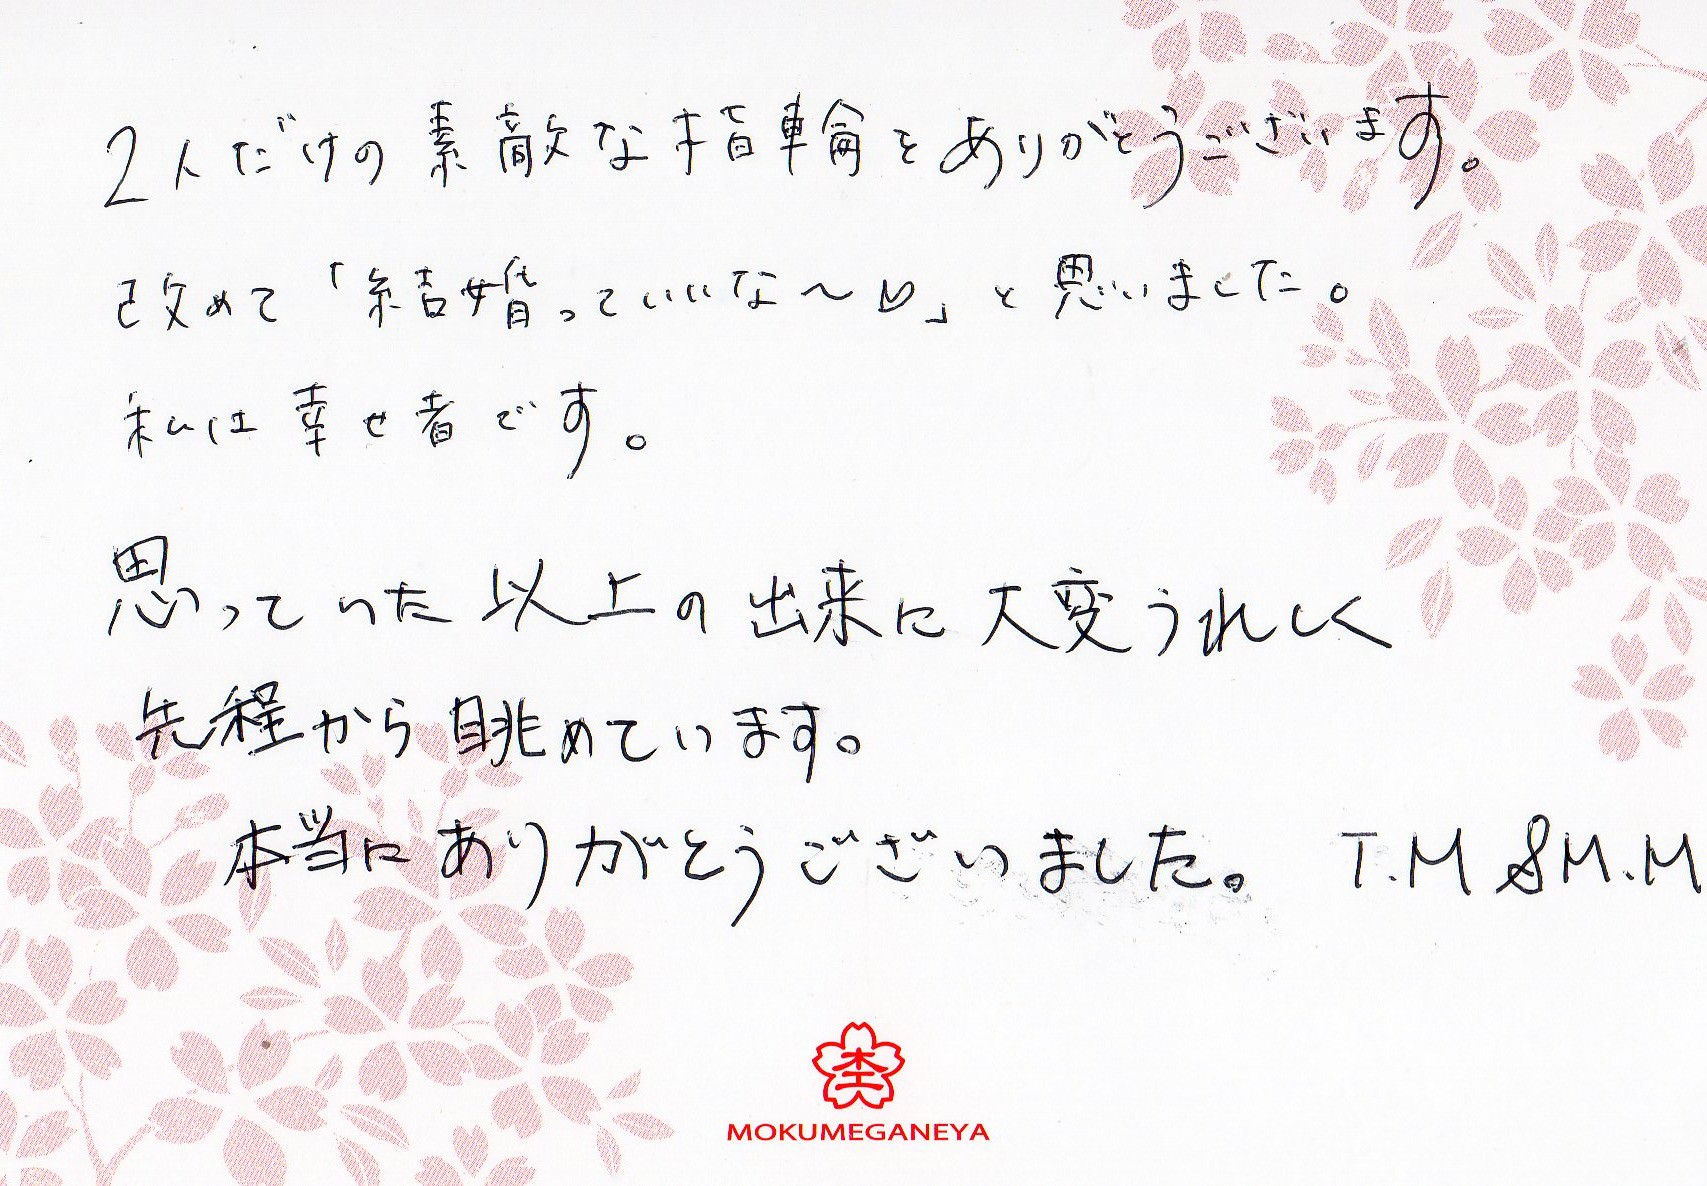 2人だけの素敵な指輪をありがとうございます。
改めて「結婚っていいな〜♡」と思いました。
私は幸せ者です。
思っていた以上の出来に大変うれしく
先程から眺めています。
本当にありがとうございました。 T.M & M.M
MOKUMEGANEYA